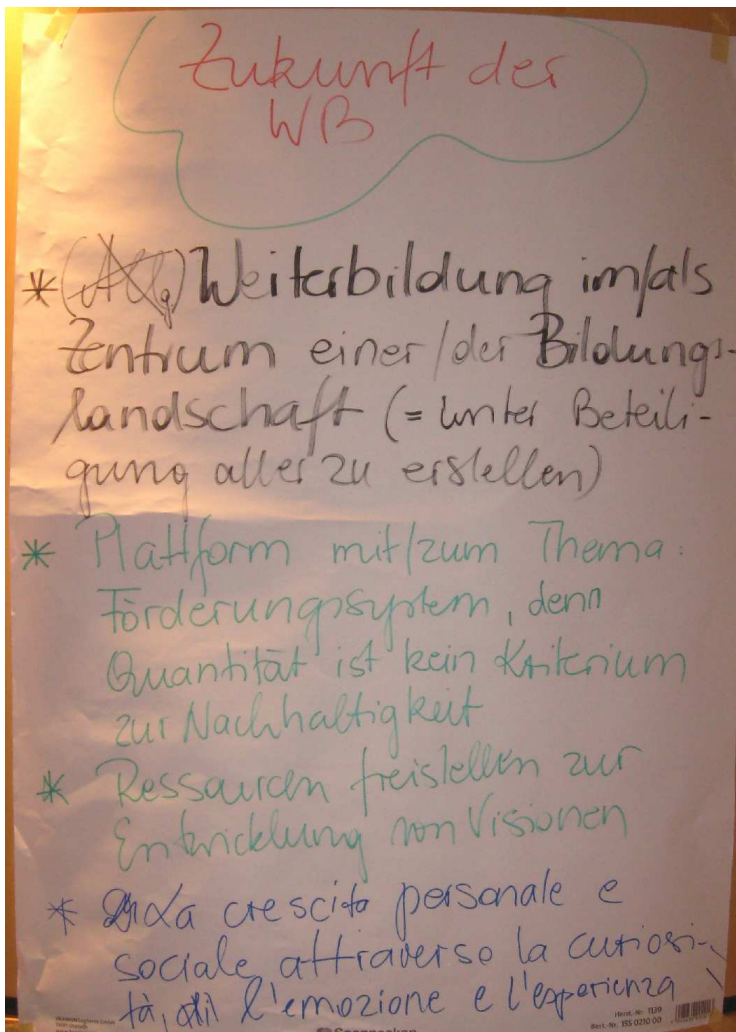 Zukunft der
WB
* Weiterbildung im/als
Zentrum einer/der Bildungs-
landschaft (= unter Beteili-
gung aller zu erstellen)
* Plattform mit/zum Thema:
Förderungssystem, denn
Quantität ist kein Kriterium
zur Nachhaltigkeit
* Ressourcen freistellen zur
Entwicklung von Visionen
* La crescita personale e
sociale attraverso la curiosi-
tà, l'emozione e l'esperienza
Herst.-Nr. 1139
Best.-Nr. 155 0210 00